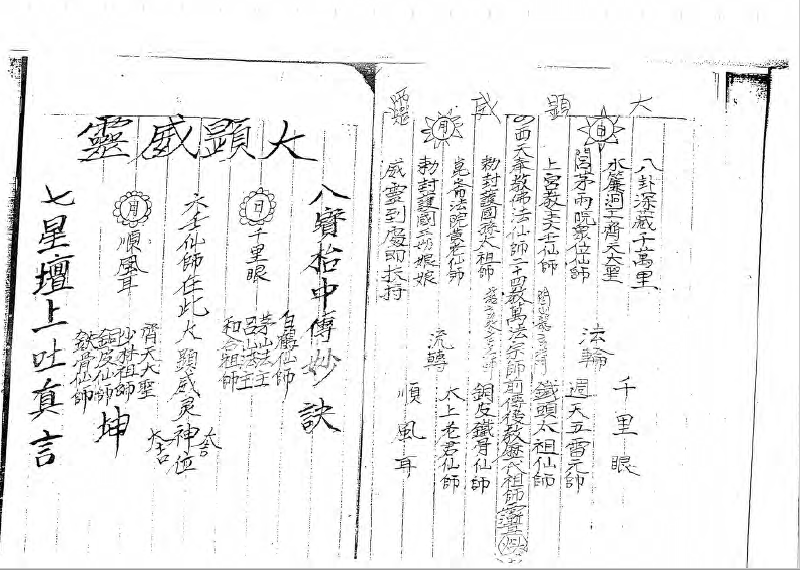 大顯威靈
八卦深藏千萬里
水簾洞中齊天大聖
日
閭茅兩院衆位仙師
上宮教主六壬仙師
西天奉教佛法仙師二十四教萬法宗師前傳後教歷代祖師靈
勅封護國齊太祖師
崑崙法院黃老仙師
月
勅封護國王母娘娘
威靈到處即扶持
法輪
流轉
千里眼
週天五雷元帥
鐵頭太祖仙師
銅皮鐵骨仙師
太上老君仙師
順風耳
大顯威靈
八寶抬中傳妙訣
白鶴仙師
茅山法主
和合祖師
日
千里眼
六壬仙師在此大顯威灵神位
大吉
月
順風耳
坤
齊天大聖
少林祖師
銅皮仙師
鉄骨仙師
七星壇上吐真言